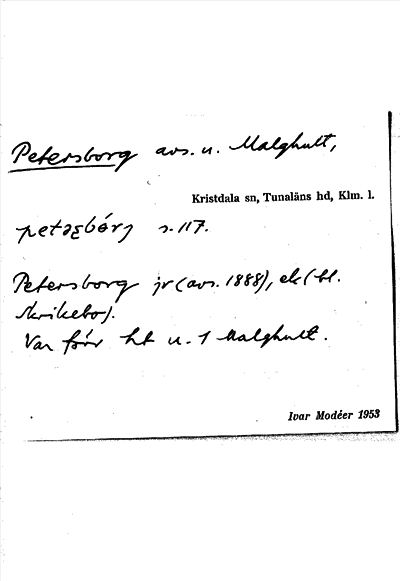 Petersborg avs. u. Malghult,
Kristdala sn, Tunaläns hd, Klm. l.
s. 117.
Petersborg jr (avs. 1888), ek (bl.
Krikebo).
Var förr ht u. 1 Malghult.
Ivar Modéer 1953